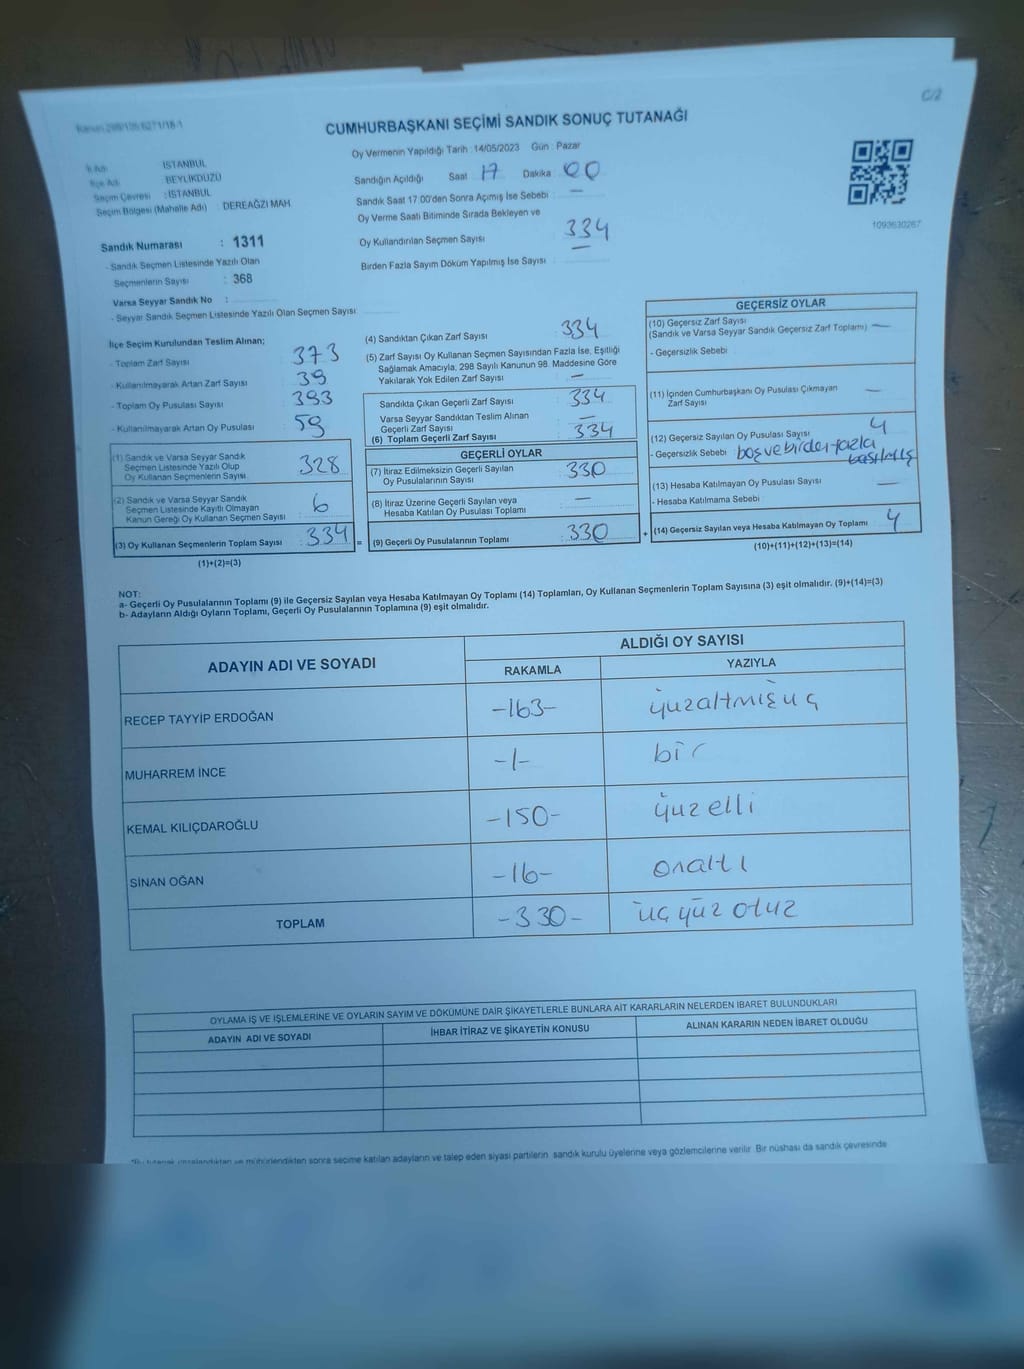 C/2
CUMHURBAŞKANI SEÇİMİ SANDIK SONUÇ TUTANAĞI
Oy Vermenin Yapıldığı Tarih : 14/05/2023 Gün : Pazar
İli Adı : İSTANBUL
İlçe Adı : BEYLİKDÜZÜ
Seçim Çevresi : İSTANBUL
Seçim Bölgesi (Mahalle Adı) : DEREAĞZI MAH.
Sandık Numarası : 1311
- Sandık Seçmen Listesinde Yazılı Olan
Seçmenlerin Sayısı : 368
Varsa Seyyar Sandık No :
- Seyyar Sandık Seçmen Listesinde Yazılı Olan Seçmen Sayısı:
Sandığın Açıldığı Saat 17 Dakika 00
Sandık Saat 17:00'den Sonra Açımış İse Sebebi : —
Oy Verme Saati Bitiminde Sırada Bekleyen ve
Oy Kullandırılan Seçmen Sayısı : 334 —
Birden Fazla Sayım Döküm Yapılmış İse Sayısı :
1093630267
İlçe Seçim Kurulundan Teslim Alınan;
- Toplam Zarf Sayısı : 373
- Kullanılmayarak Artan Zarf Sayısı : 39
- Toplam Oy Pusulası Sayısı : 393
- Kullanılmayarak Artan Oy Pusulası : 59
(1) Sandık ve Varsa Seyyar Sandık
Seçmen Listesinde Yazılı Olup
Oy Kullanan Seçmenlerin Sayısı : 328
(2) Sandık ve Varsa Seyyar Sandık
Seçmen Listesinde Kayıtlı Olmayan
Kanun Gereği Oy Kullanan Seçmen Sayısı : 6
(3) Oy Kullanan Seçmenlerin Toplam Sayısı : 334 =
(1)+(2)=(3)
(4) Sandıktan Çıkan Zarf Sayısı : 334
(5) Zarf Sayısı Oy Kullanan Seçmen Sayısından Fazla İse, Eşitliği
Sağlamak Amacıyla, 298 Sayılı Kanunun 98. Maddesine Göre
Yakılarak Yok Edilen Zarf Sayısı : —
Sandıkta Çıkan Geçerli Zarf Sayısı : 334
Varsa Seyyar Sandıktan Teslim Alınan
Geçerli Zarf Sayısı : —
(6) Toplam Geçerli Zarf Sayısı : 334
GEÇERLİ OYLAR
(7) İtiraz Edilmeksizin Geçerli Sayılan
Oy Pusulalarının Sayısı : 330
(8) İtiraz Üzerine Geçerli Sayılan veya
Hesaba Katılan Oy Pusulası Toplamı : —
(9) Geçerli Oy Pusulalarının Toplamı : 330 +
GEÇERSİZ OYLAR
(10) Geçersiz Zarf Sayısı
(Sandık ve Varsa Seyyar Sandık Geçersiz Zarf Toplamı) : —
- Geçersizlik Sebebi :
(11) İçinden Cumhurbaşkanı Oy Pusulası Çıkmayan
Zarf Sayısı : —
(12) Geçersiz Sayılan Oy Pusulası Sayısı : 4
- Geçersizlik Sebebi : boş ve birden fazla
basılmış
(13) Hesaba Katılmayan Oy Pusulası Sayısı : —
- Hesaba Katılmama Sebebi :
(14) Geçersiz Sayılan veya Hesaba Katılmayan Oy Toplamı : 4
(10)+(11)+(12)+(13)=(14)
NOT:
a- Geçerli Oy Pusulalarının Toplamı (9) ile Geçersiz Sayılan veya Hesaba Katılmayan Oy Toplamı (14) Toplamları, Oy Kullanan Seçmenlerin Toplam Sayısına (3) eşit olmalıdır. (9)+(14)=(3)
b- Adayların Aldığı Oyların Toplamı, Geçerli Oy Pusulalarının Toplamına (9) eşit olmalıdır.
ADAYIN ADI VE SOYADI ALDIĞI OY SAYISI
RAKAMLA YAZIYLA
RECEP TAYYİP ERDOĞAN -163- yüzaltmışüç
MUHARREM İNCE -1- bir
KEMAL KILIÇDAROĞLU -150- yüzelli
SİNAN OĞAN -16- onaltı
TOPLAM -330- üçyüz otuz
OYLAMA İŞ VE İŞLEMLERİNE VE OYLARIN SAYIM VE DÖKÜMÜNE DAİR ŞİKAYETLERLE BUNLARA AİT KARARLARIN NELERDEN İBARET BULUNDUKLARI
ADAYIN ADI VE SOYADI İHBAR İTİRAZ VE ŞİKAYETİN KONUSU ALINAN KARARIN NEDEN İBARET OLDUĞU
mühürlendikten sonra seçime katılan adayların ve talep eden siyasi partilerin sandık kurulu üyelerine veya gözlemcilerine verilir. Bir nüshası da sandık çevresinde